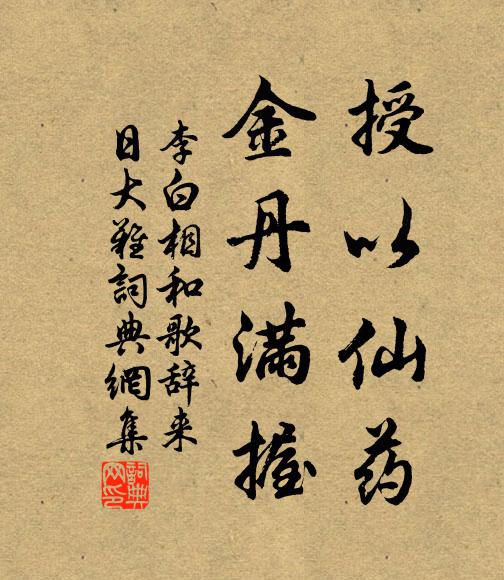 授以仙药
金丹满握
李白相和歌辞来
日大難詞典網集
詞典
网印